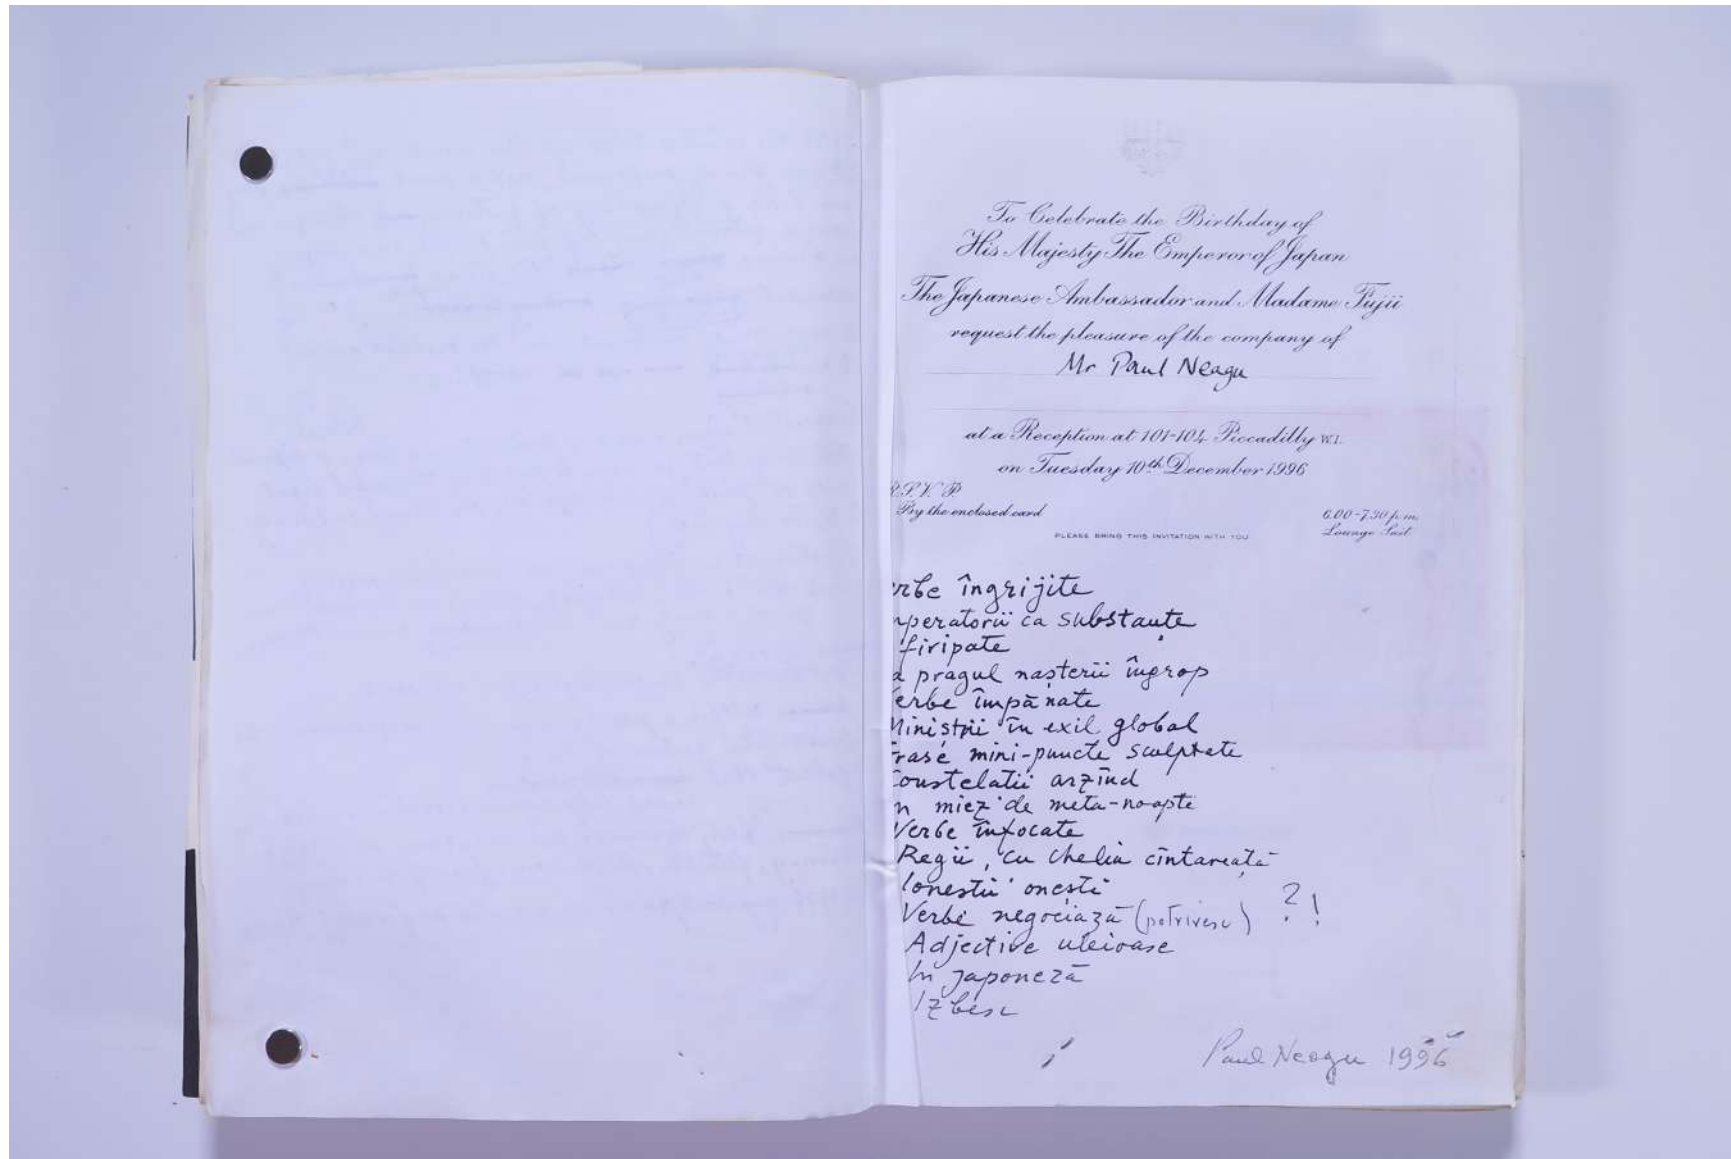 To Celebrate the Birthday of
His Majesty The Emperor of Japan
The Japanese Ambassador and Madame Fujii
request the pleasure of the company of
Mr Paul Neagu
at a Reception at 101-104 Piccadilly W.1.
on Tuesday 10th December 1996
R.S.V.P.
By the enclosed card
6.00-7.30 p.m.
Lounge Suit
PLEASE BRING THIS INVITATION WITH YOU
erbe îngrijite
mperatorii ca substanțe
firipate
a pragul nașterii îngrop
erbe împănate
Miniștrii în exil global
rase mini-puncte sculptate
Constelatii arzînd
n miez de meta-noapte
Verbe înfocate
Regii, cu chelia cîntareață
Ionestii onești
Verbe negociază (potrivesc) ?!
Adjective uleioase
In japoneză
Izbesc
Paul Neagu 1996